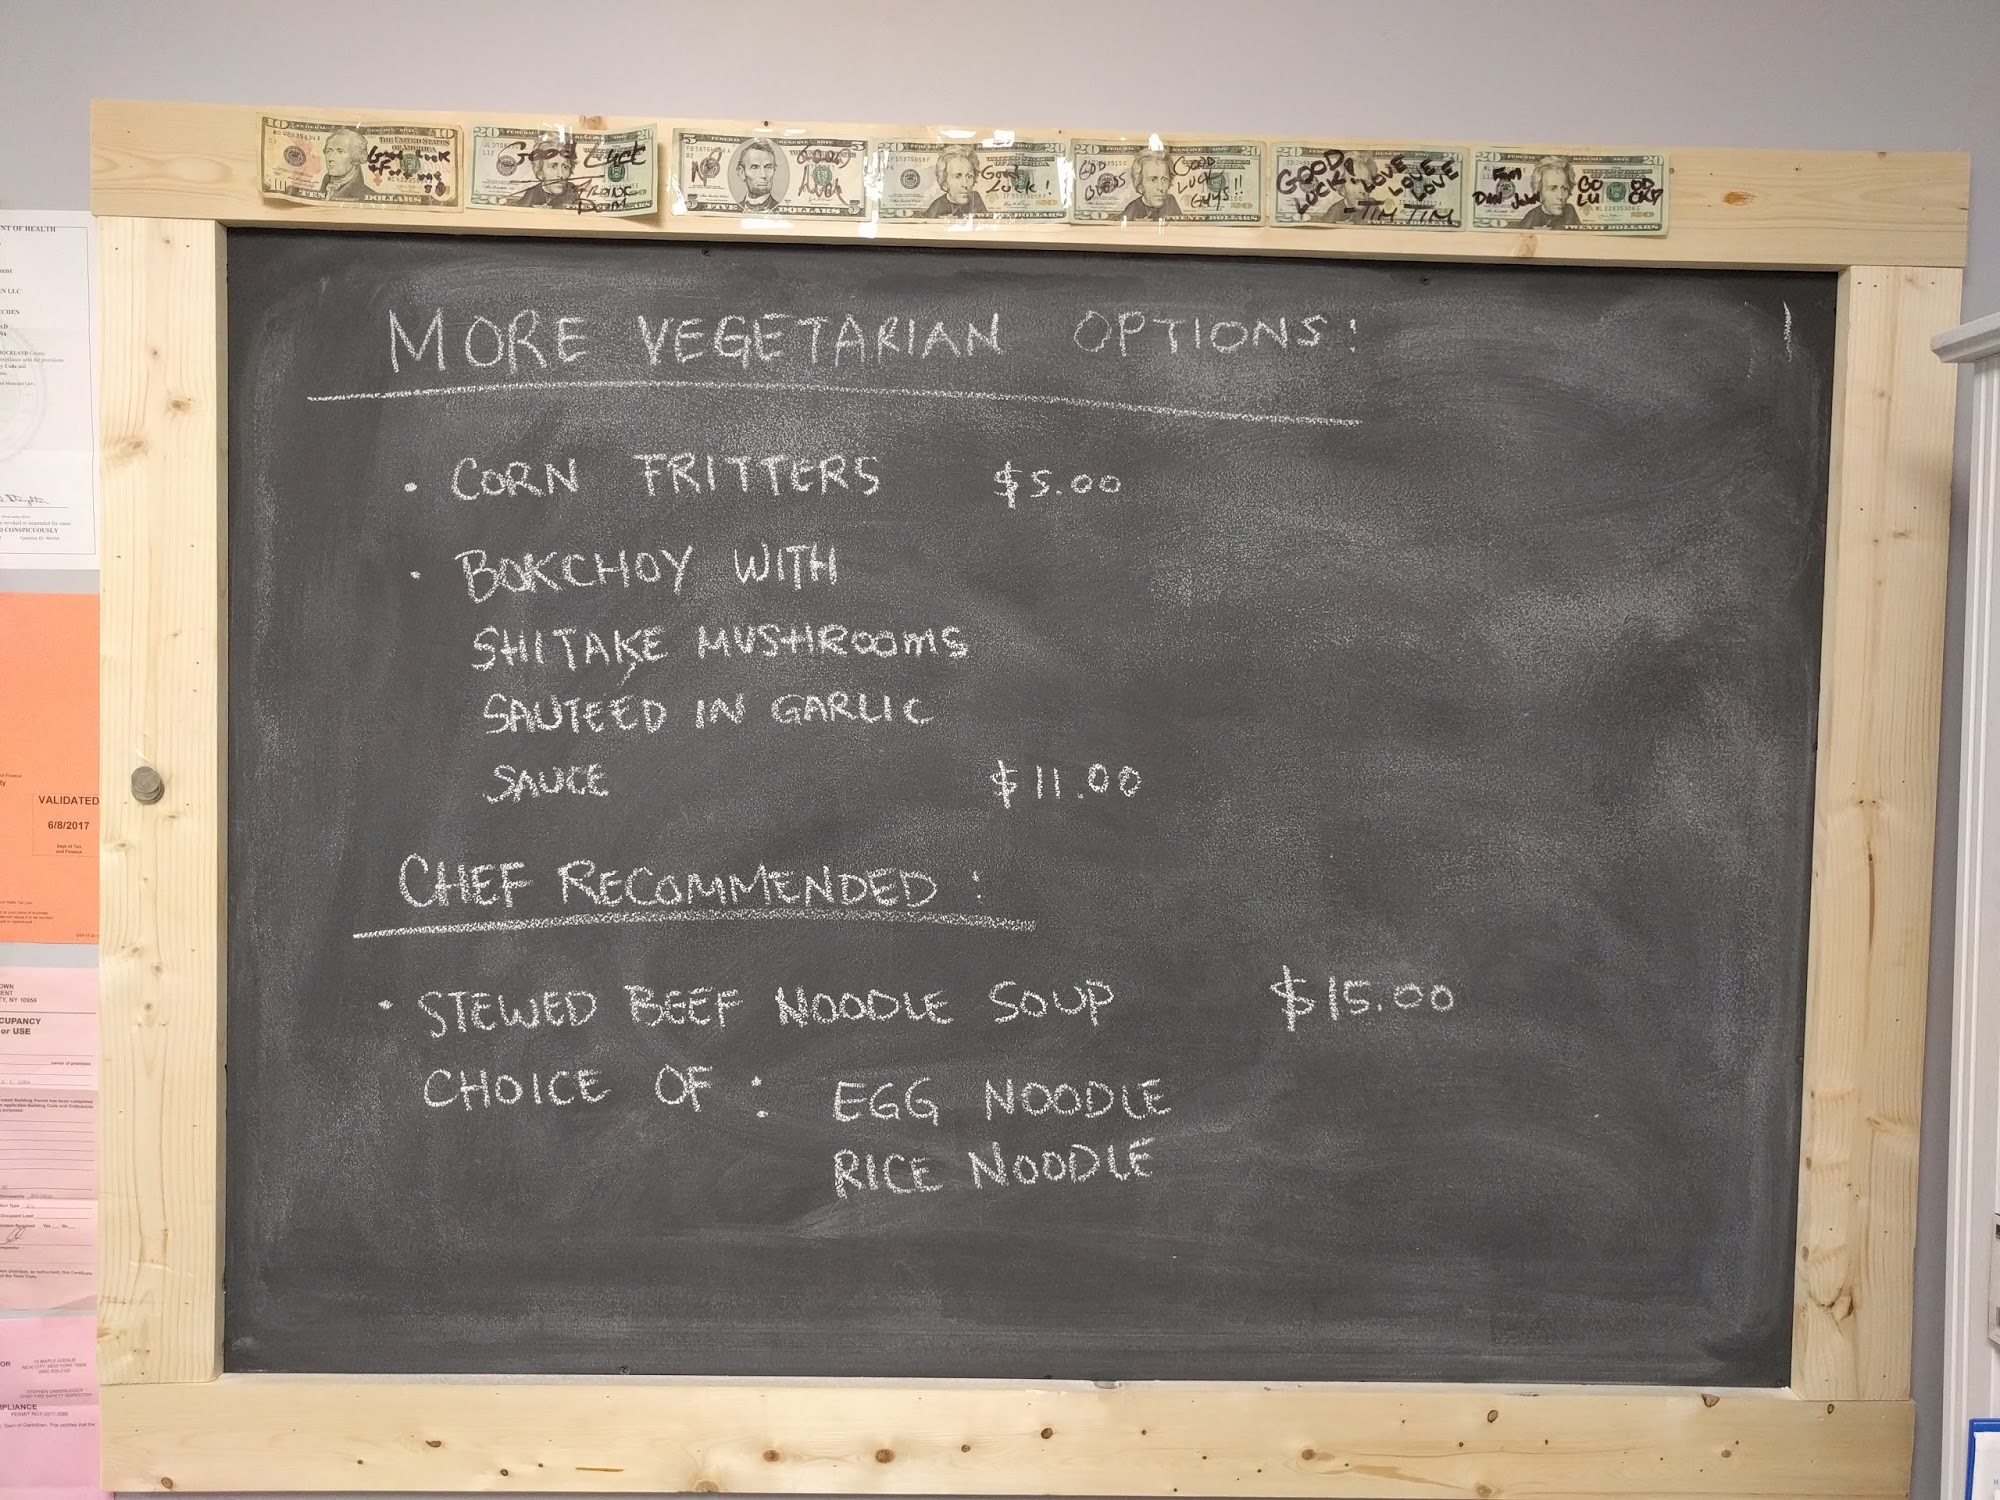 GOOD LUCK
GOOD LUCK
GOOD LUCK!
GOD BLESS
GOOD LUCK GUYS!!
GOOD LUCK! LOVE LOVE LOVE
-TIM TIM
MORE VEGETARIAN OPTIONS!
• CORN FRITTERS $5.00
• BOKCHOY WITH
SHITAKE MUSHROOMS
SAUTEED IN GARLIC
SAUCE $11.00
CHEF RECOMMENDED:
• STEWED BEEF NOODLE SOUP $15.00
CHOICE OF: EGG NOODLE
RICE NOODLE
VALIDATED
6/8/2017
Dept of Tax
and Finance